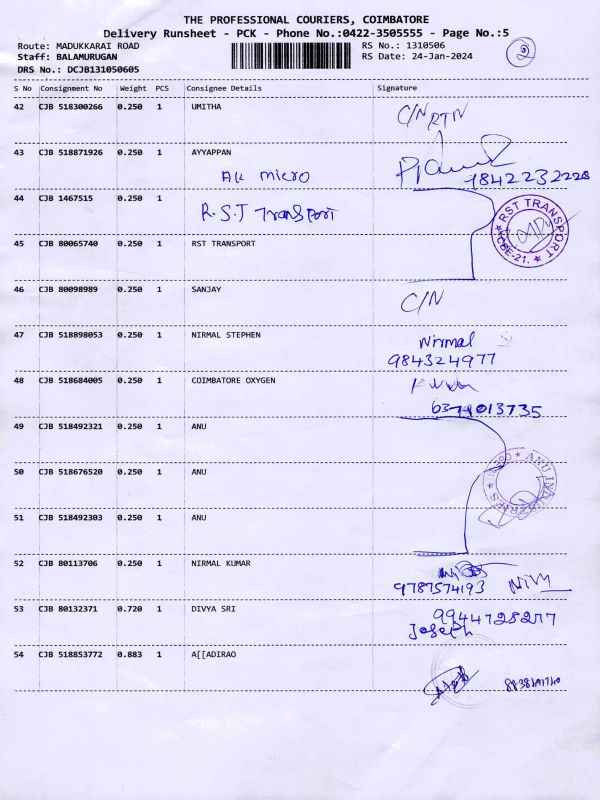 THE PROFESSIONAL COURIERS, COIMBATORE
Delivery Runsheet - PCK - Phone No.:0422-3505555 - Page No.:5
Route: MADUKKARAI ROAD RS No.: 1310506 2
Staff: BALAMURUGAN RS Date: 24-Jan-2024
DRS No.: DCJB131050605
S No Consignment No Weight PCS Consignee Details Signature
42 CJB 518300266 0.250 1 UMITHA
C/N RTN
43 CJB 518871926 0.250 1 AYYAPPAN
AK micro 1842232228
44 CJB 1467515 0.250 1
R.S.T Transport
RST TRANSPORT
CBE-21.
45 CJB 80065740 0.250 1 RST TRANSPORT
46 CJB 80098989 0.250 1 SANJAY
C/N
47 CJB 518898053 0.250 1 NIRMAL STEPHEN
Nirmal
984324977
48 CJB 518684005 0.250 1 COIMBATORE OXYGEN
6374013735
49 CJB 518492321 0.250 1 ANU
50 CJB 518676520 0.250 1 ANU
ANU
51 CJB 518492303 0.250 1 ANU
52 CJB 80113706 0.250 1 NIRMAL KUMAR
9787574193
53 CJB 80132371 0.720 1 DIVYA SRI
9944728277
Joseph
54 CJB 518853772 0.883 1 A[[ADIRAO